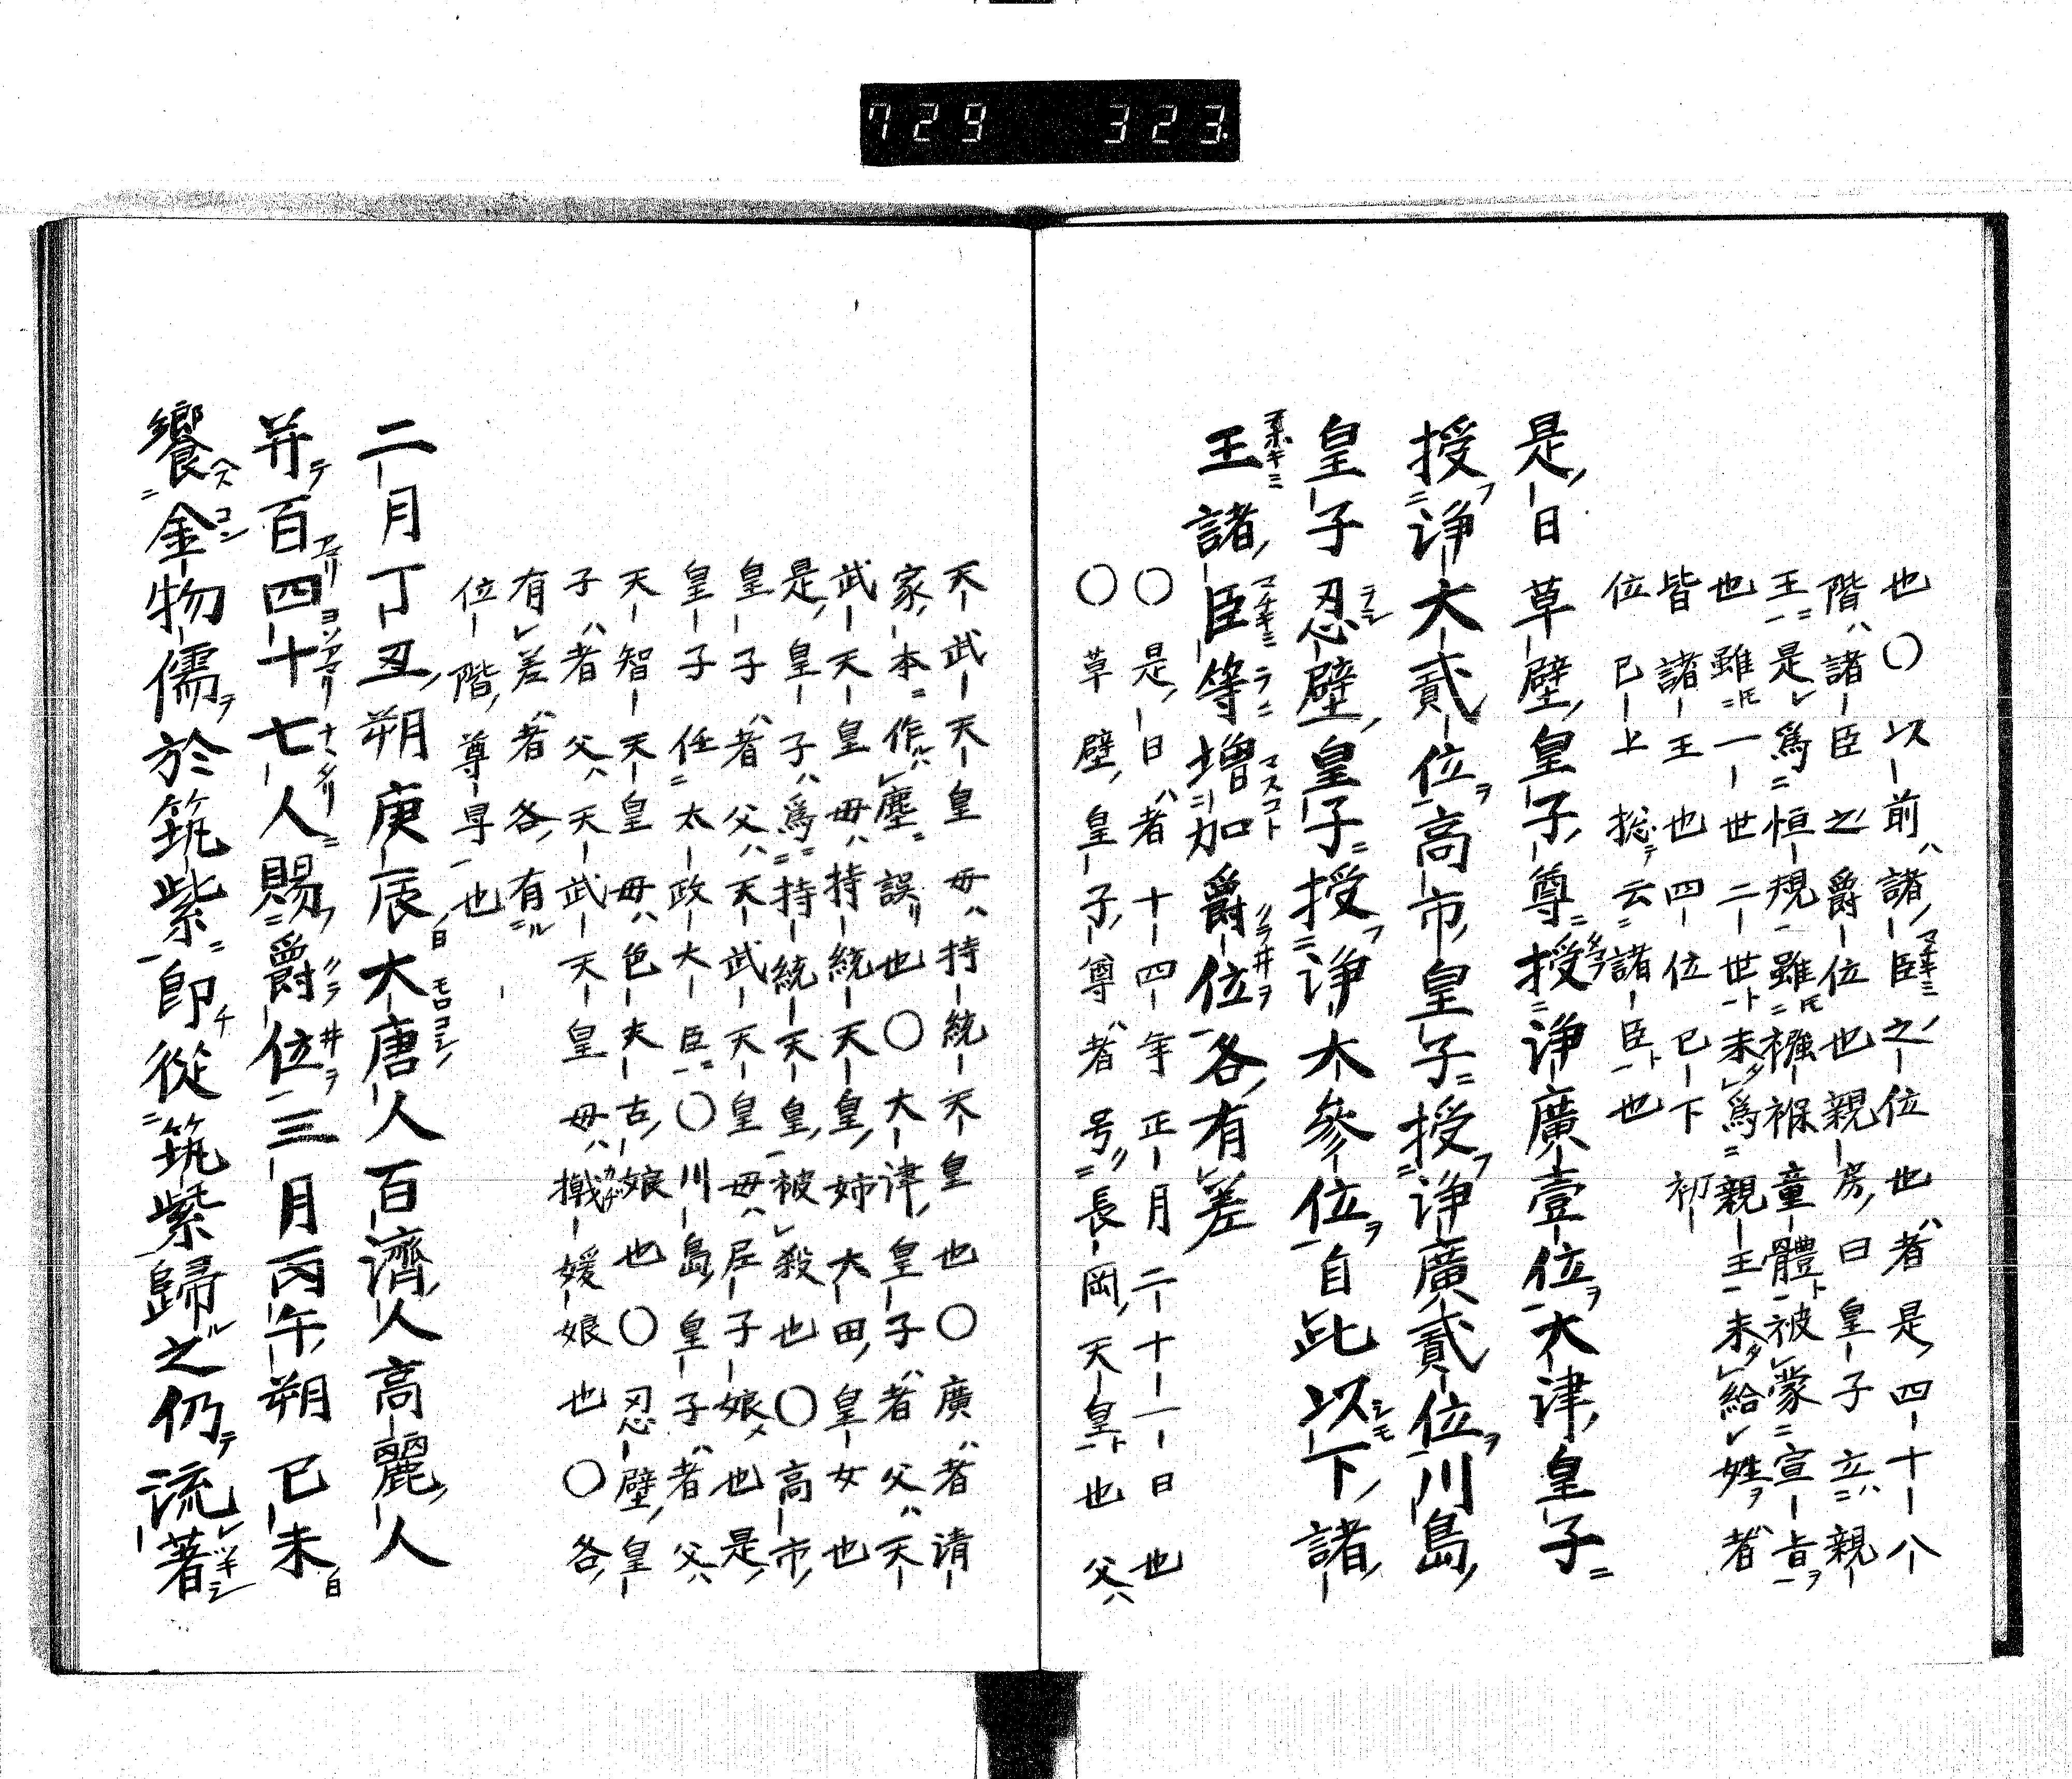 729 323
也〇以前諸臣之位也者是四十八
階諸臣之爵位也親房曰皇子立親
王是爲恒規雖襁褓童體被蒙宣旨
也雖一世二世未爲親王未給姓者
皆諸王也四位已下初
位已上捴云諸臣也
是日草壁皇子尊授淨廣壹位大津皇子
授淨大貳位高市皇子授淨廣貳位川島
皇子忍壁皇子授淨大參位自此以下諸
王諸臣等增加爵位各有差
〇是日者十四年正月二十一日也
〇草壁皇子尊者号長岡天皇也父
天武天皇母持統天皇也〇廣者請
家本作塵誤也〇大津皇子者父天
武天皇母持統天皇姉大田皇女也
是皇子爲持統天皇被殺也〇高市
皇子者父天武天皇母尼子娘也是
皇子任太政大臣〇川島皇子者父
天智天皇母色夫古娘也〇忍壁皇
子者父天武天皇母擑媛娘也〇各
有差者各有
位階尊早也
二月丁丑朔庚辰大唐人百濟人高麗人
并百四十七人賜爵位三月丙午朔己未
饗金物儒於筑紫即從筑紫歸之仍流著